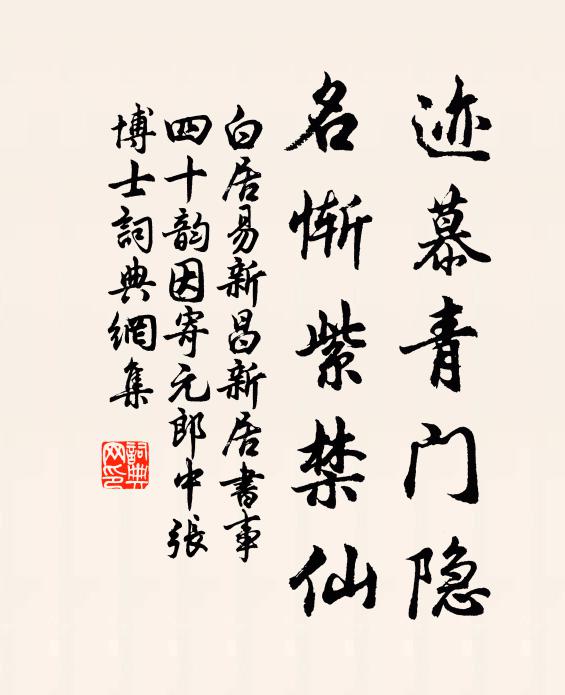 迹慕青门隐
名惭紫禁仙
白居易新昌新居书事
四十韵因寄元郎中张
博士詞典網集
詞典
网印